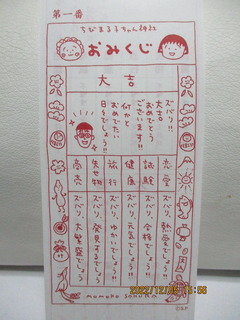 第一番
ちびまる子ちゃん神社
おみくじ
大吉
ズバリ!!
大吉
おめでとう
ございます!!
何かと
おめでたい
日々でしょう!!
恋愛
ズバリ、熱愛でしょう!!
試験
ズバリ、合格でしょう!!
健康
ズバリ、元気でしょう!!
旅行
ズバリ、ゆかいでしょう!!
失せ物
ズバリ、発見するでしょう
商売
ズバリ、大繁盛でしょう
MOMOKO SAKURA